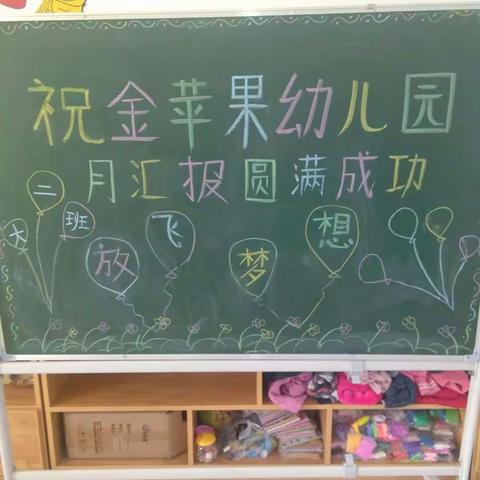 祝金苹果幼儿园
月汇报圆满成功
大二班
放飞梦想